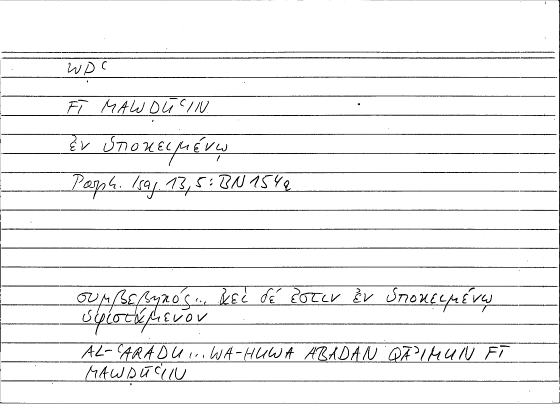 WḌʿ
FĪ MAWḌŪʿIN
ἐν ὑποκειμένῳ
Porph. Isag. 13,5: BN 154a
συμβεβηκός... ἀεὶ δέ ἐστιν ἐν ὑποκειμένῳ
ὑφιστάμενον
AL-ʿARAḌU... WA-HUWA ABADAN QĀʾIMUN FĪ
MAWḌŪʿIN